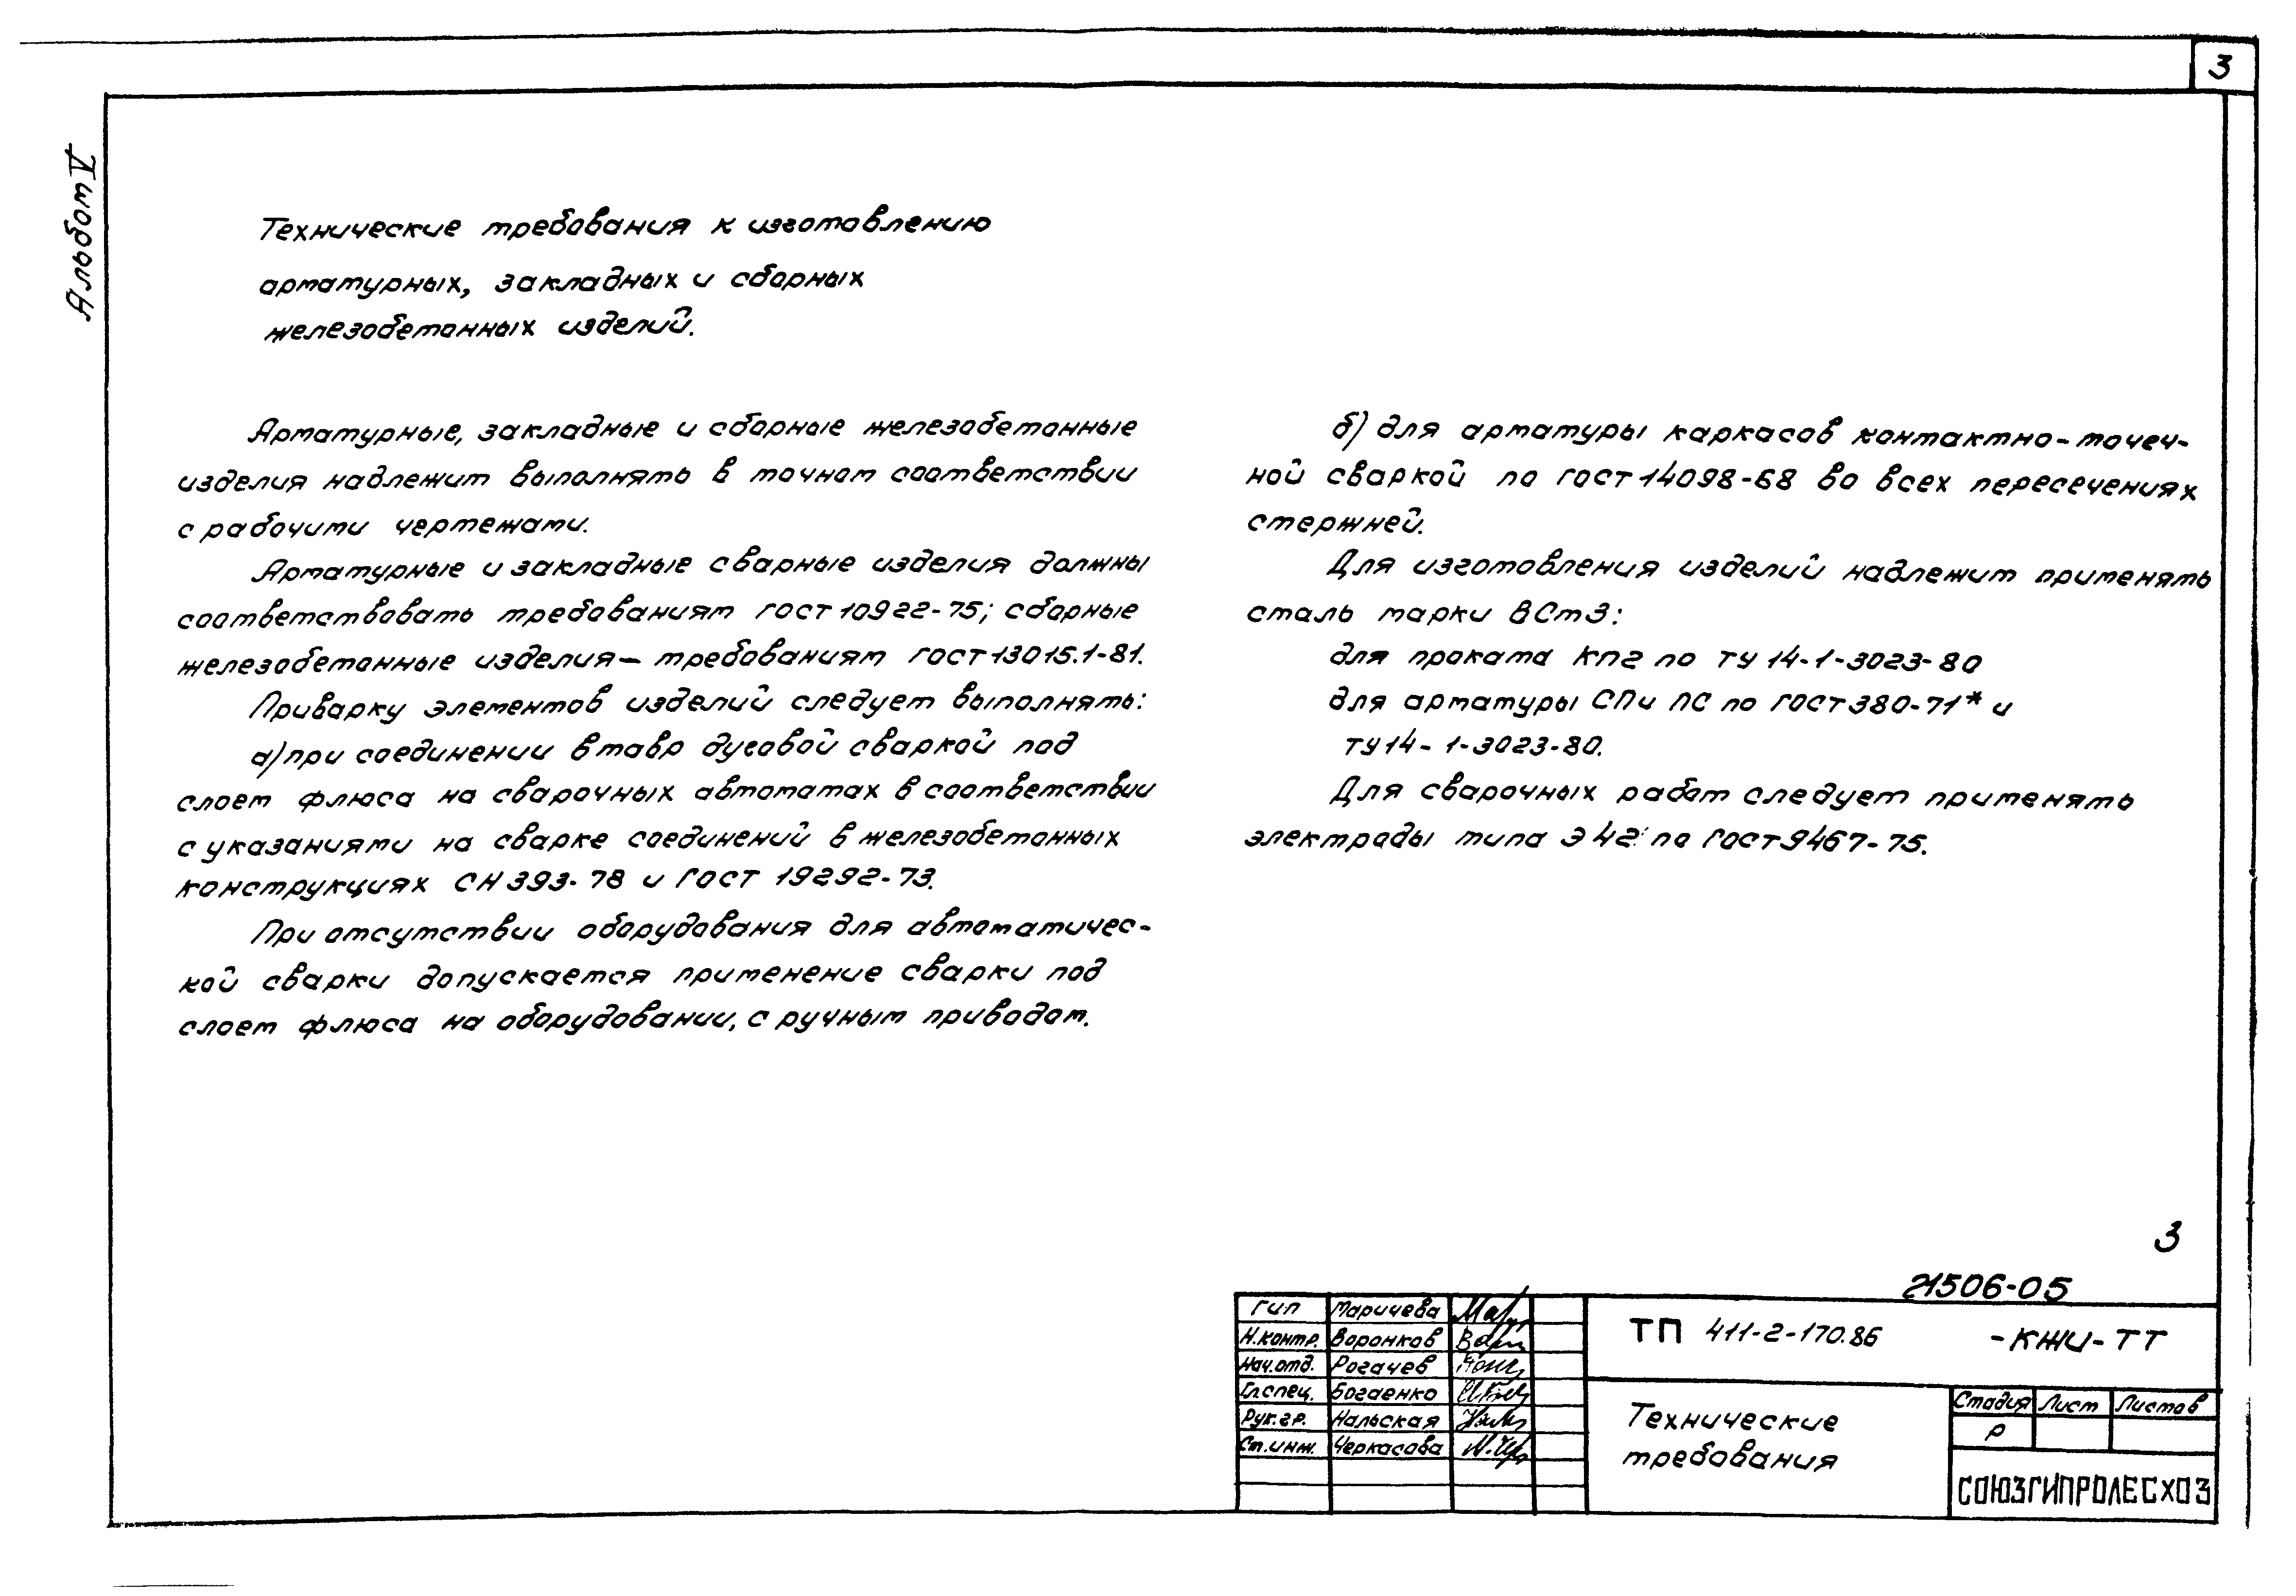 3
Альбом V
Технические требования к изготовлению
арматурных, закладных и сборных
железобетонных изделий.
Арматурные, закладные и сборные железобетонные
изделия надлежит выполнять в точном соответствии
с рабочими чертежами.
Арматурные и закладные сварные изделия должны
соответствовать требованиям ГОСТ 10922-75; сборные
железобетонные изделия — требованиям ГОСТ 13015.1-81.
Приварку элементов изделий следует выполнять:
а) при соединении втавр дуговой сваркой под
слоем флюса на сварочных автоматах в соответствии
с указаниями на сварке соединений в железобетонных
конструкциях СН 393-78 и ГОСТ 19292-73.
При отсутствии оборудования для автоматичес-
кой сварки допускается применение сварки под
слоем флюса на оборудовании, с ручным приводом.
б) для арматуры каркасов контактно-точеч-
ной сваркой по ГОСТ 14098-68 во всех пересечениях
стержней.
Для изготовления изделий надлежит применять
сталь марки ВСт3:
для проката КП2 по ТУ 14-1-3023-80
для арматуры СП и ПС по ГОСТ 380-71* и
ТУ 14-1-3023-80.
Для сварочных работ следует применять
электроды типа Э42 по ГОСТ 9467-75.
3
21506-05
ГИП Маричева
Н.контр. Воронков
Нач.отд. Рогачев
Гл.спец. Богаенко
Рук.гр. Нальская
Ст.инж. Черкасова
ТП 411-2-170.86 -КЖИ-ТТ
Технические
требования
Стадия Лист Листов
Р
СОЮЗГИПРОЛЕСХОЗ